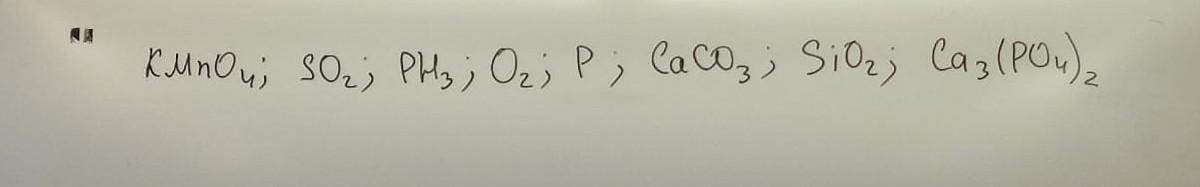 KMnO₄; SO₂; PH₃; O₂; P; CaCO₃; SiO₂; Ca₃(PO₄)₂